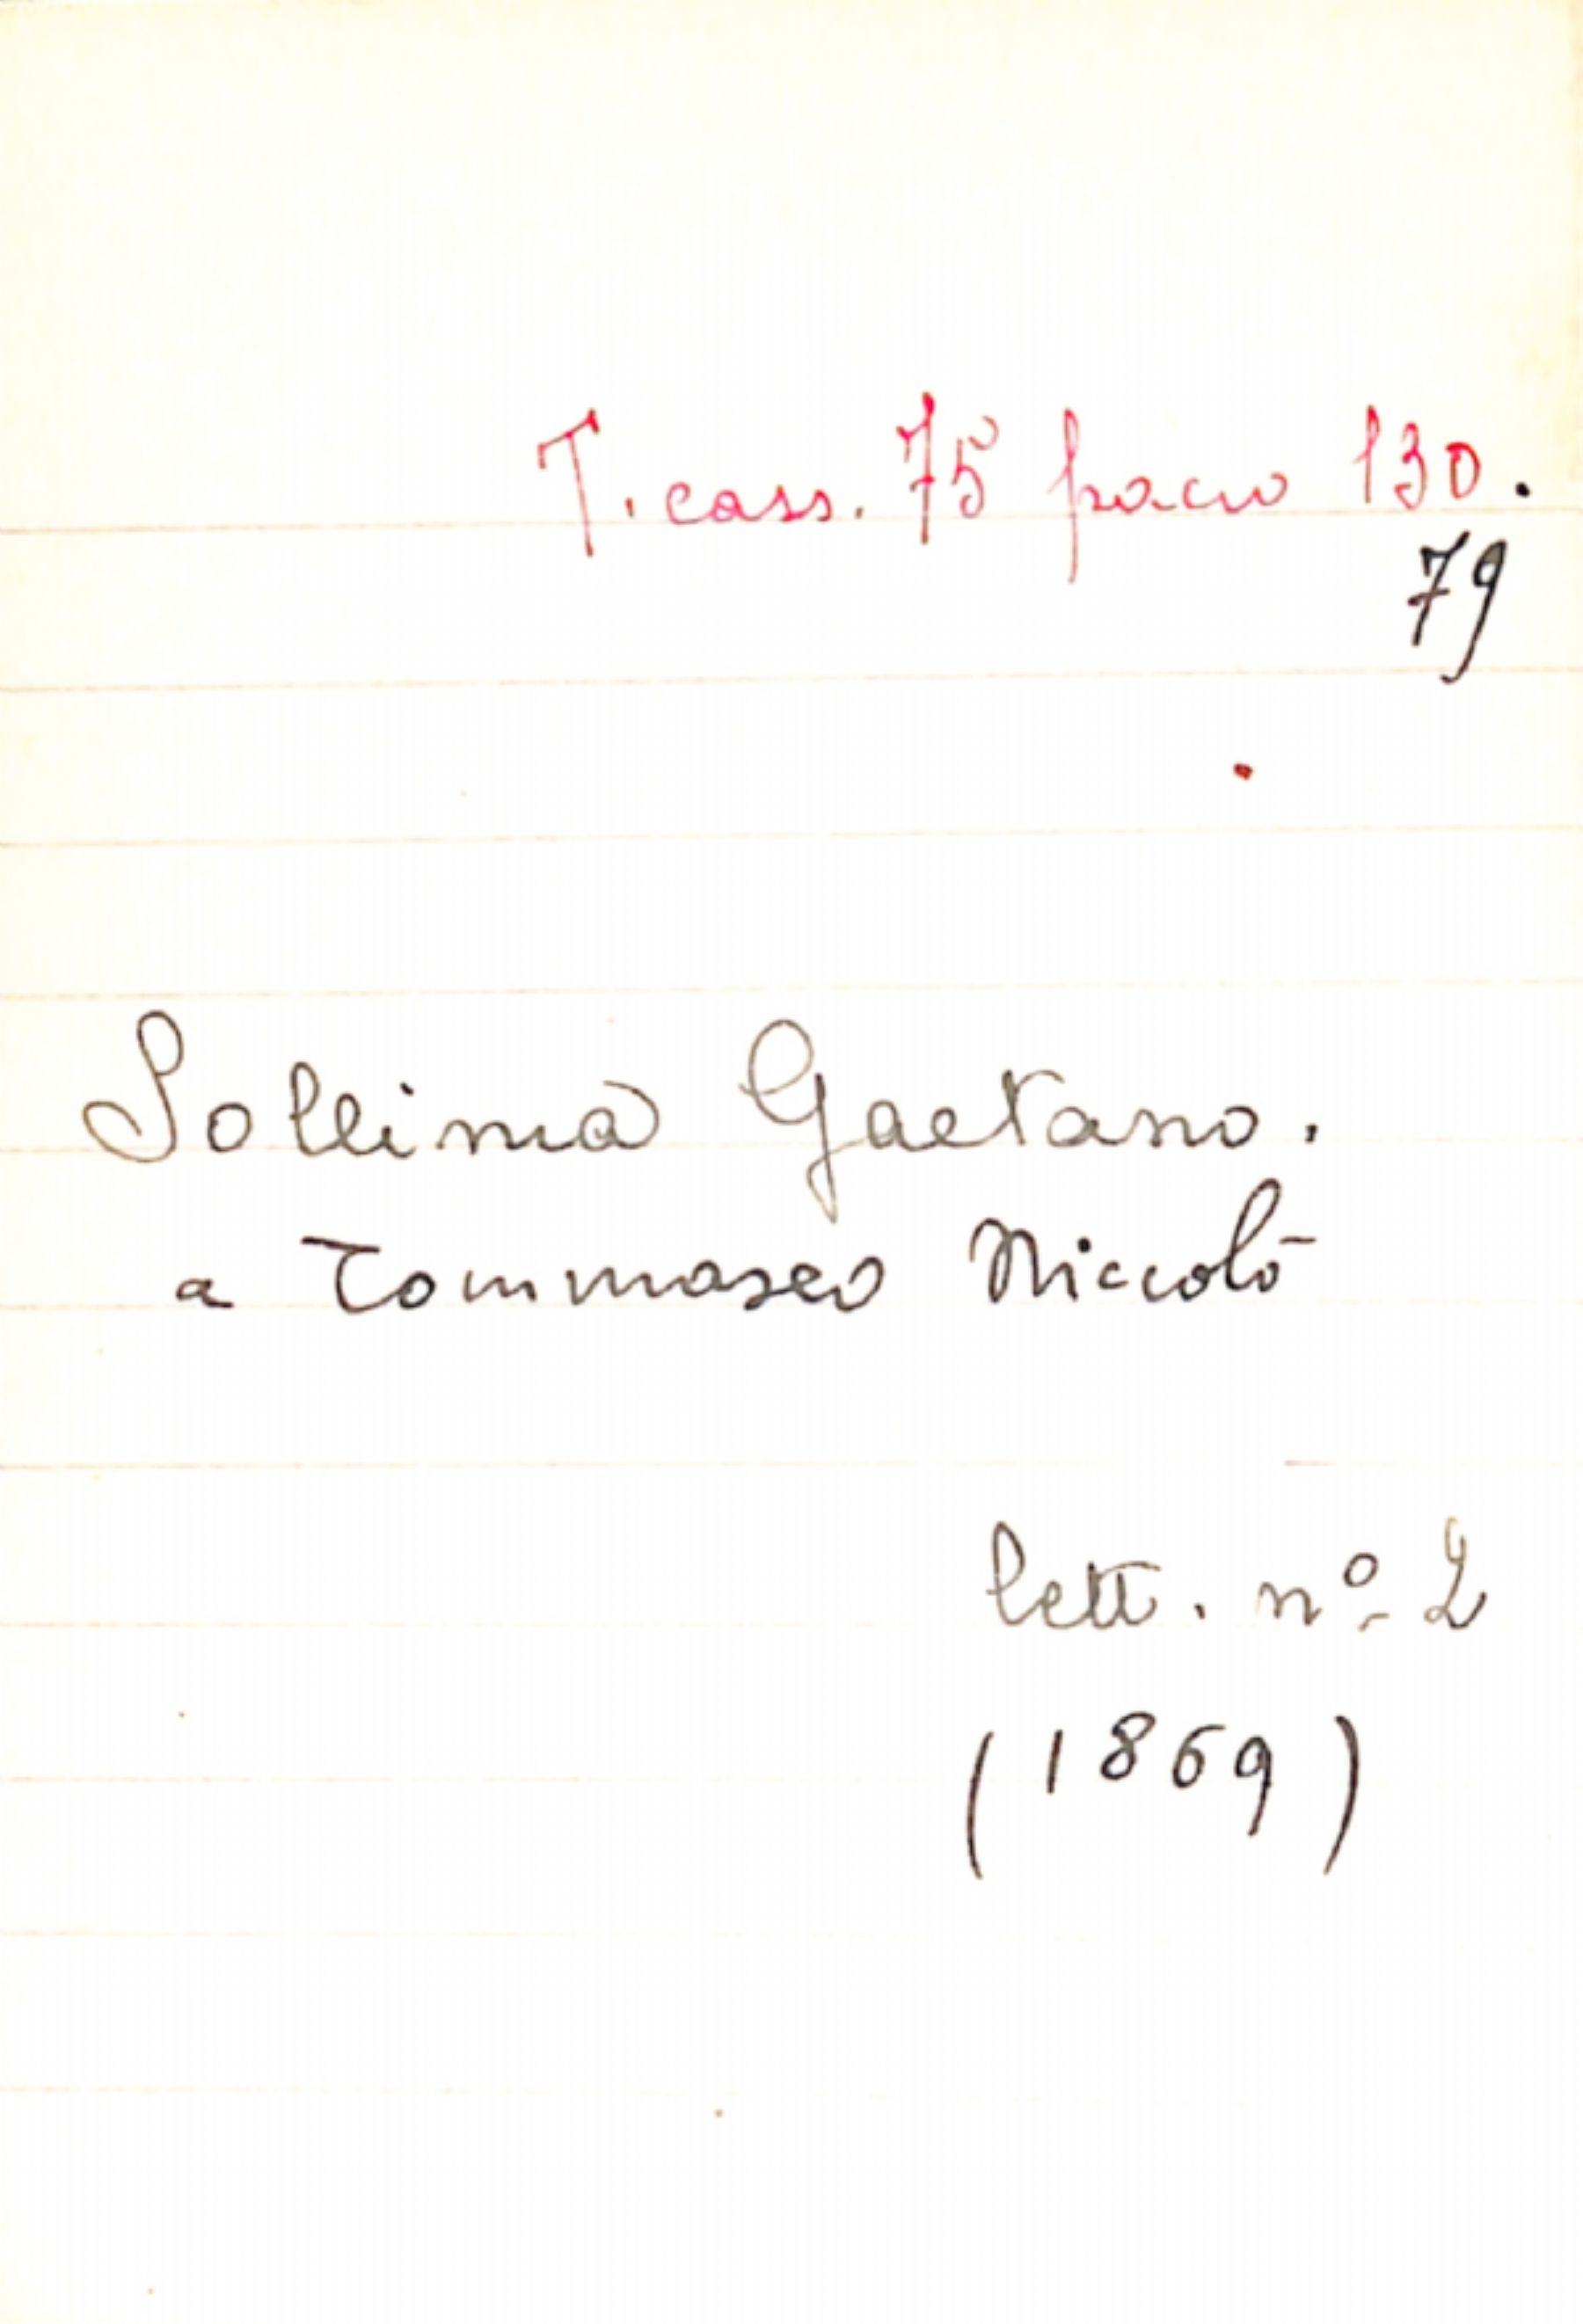 T. cass. 75 pacco 130.
79
Sollima Gaetano.
a Tommaseo Niccolò
lett. nº 2
(1869)